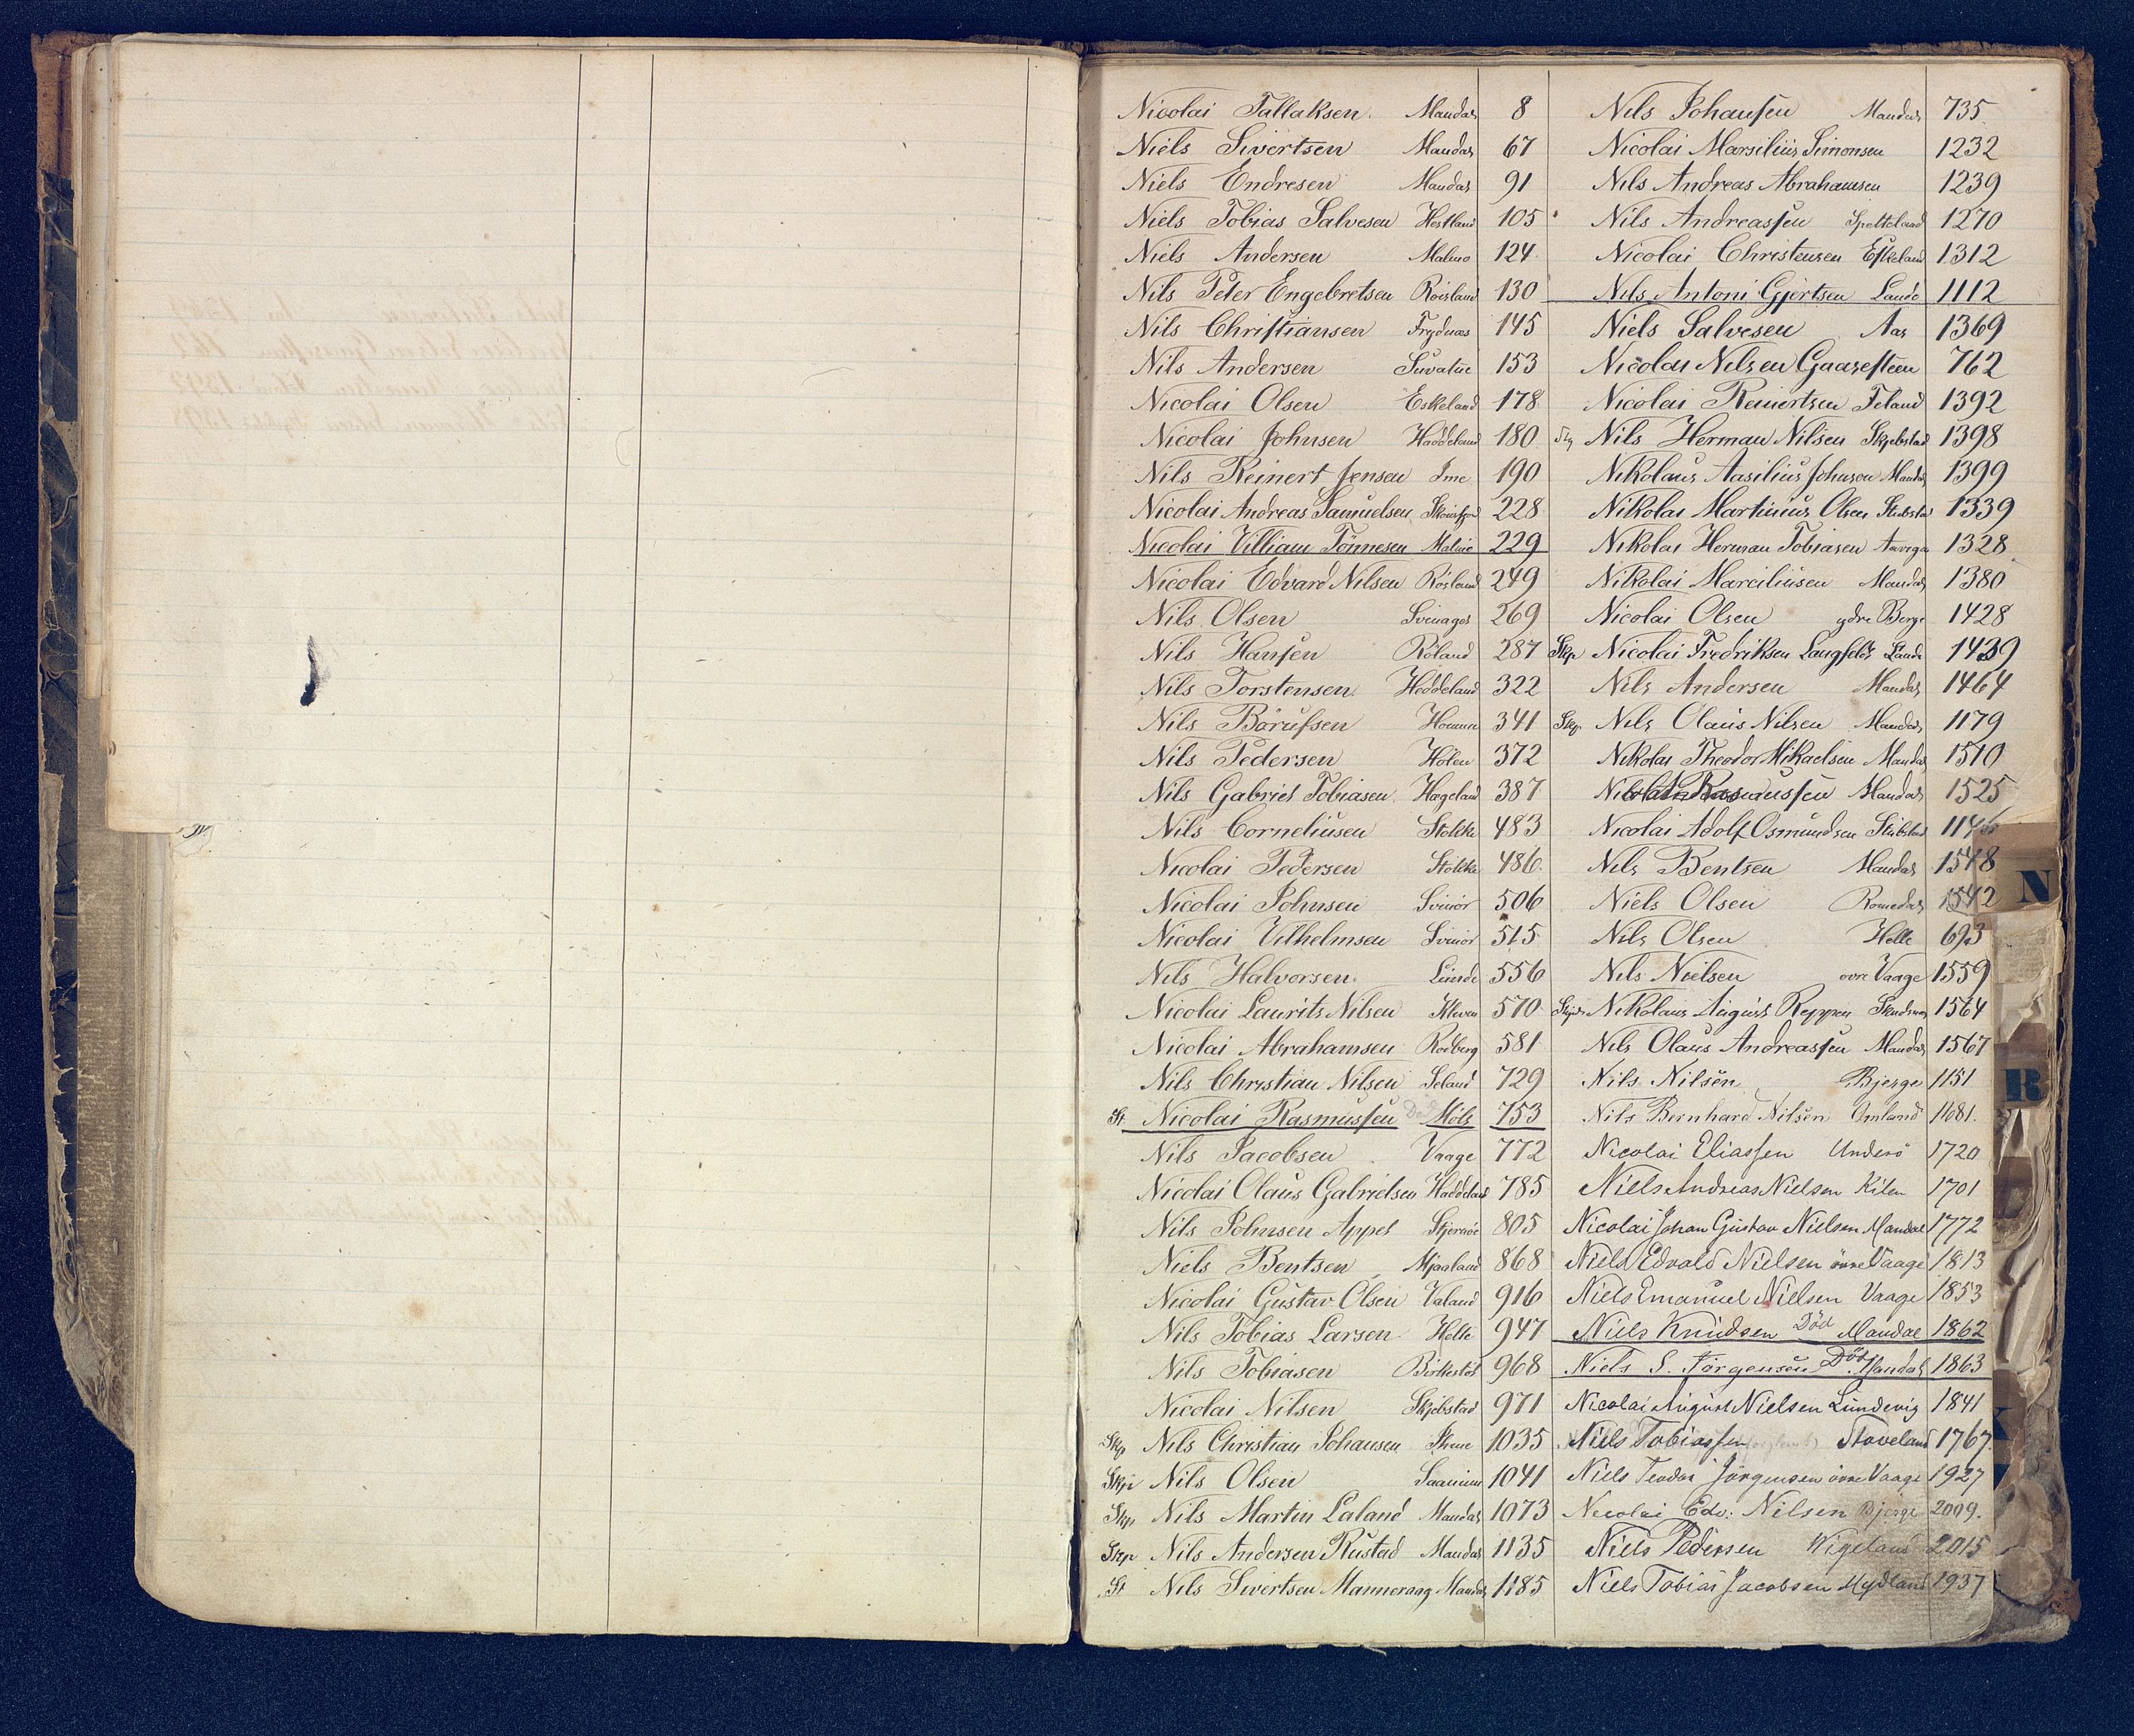 Nicolai Tallaksen. Mandal 8
Niels Sivertsen Mandal 67
Niels Endresen Mandal 91
Niels Tobias Salvesen Hestland 105
Niels Andersen Malmø 124
Nils Peter Engebretsen Roisland 130
Nils Christiansen Frydnæs 145
Nils Andersen 153
Nicolai Olsen Eskeland 178
Nicolai Johnsen Haddeland 180
Nils Reinert Jensen Ime 190
Nicolai Andreas Samuelsen 228
Nicolai Villiam Tönnesen Malmö 229
Nicolai Edvard Nilsen Rösland 249
Nils Olsen Svinager 269
Nils Hansen Röland 287
Nils Torstensen Heddeland 322
Nils Börufsen Homme 341
Nils Pedersen Holen 372
Nils Gabriel Tobiasen Hægeland 387
Nils Corneliusen Stokke 483
Nicolai Pedersen Stokke 486
Nicolai Johnsen Svinör 506
Nicolai Vilhelmsen Svinör 515
Nils Halvorsen Lunde 556
Nicolai Laurits Nilsen Kleven 570
Nicolai Abrahamsen Rodberg 581
Nils Christian Nilsen Seland 729
St Nicolai Rasmussen Död Mols 753
Nils Jacobsen Vaage 772
Nicolai Olaus Gabrielsen Haddeland 785
Nils Johnsen Appel Skjernöe 805
Niels Bentsen Mjaaland 868
Nicolai Gustav Olsen Valand 916
Nils Tobias Larsen Helle 947
Nils Tobiasen Birkestöl 968
Nicolai Nilsen Skjebstad 971
Skp Nils Christian Johansen 1035
Skp Nils Olsen Saanum 1041
Skp Nils Martin Laland Mandal 1073
Skp Nils Andersen Rustad Mandal 1135
St Nils Sivertsen Manneraag Mandal 1185
Nils Johansen Mandal 735
Nicolai Marsilius Simonsen 1232
Nils Andreas Abrahamsen 1239
Nils Andreassen Spetteland 1270
Nicolai Christensen Eskeland 1312
Nils Antoni Gjertsen Landö 1112
Niels Salvesen Aas 1369
Nicolai Nilsen Gaaresteen 762
Nicolai Reinertsen Feland 1392
Nils Herman Nilsen Skjebstad 1398
Nikolaus Aasilius Johnson Mandal 1399
Nikolai Martinius Olsen Stubstad 1339
Nikolai Herman Tobiasen 1328
Nikolai Marciliusen Mandal 1380
Nicolai Olsen ydre Berge 1428
Skp Nicolai Fredriksen Langfeldt Lande 1439
Nils Andersen Mandal 1464
Skp. Nils Olaus Nilsen Mandal 1179
Nikolai Theodor Mikaelsen Mandal 1510
Nicolai Rasmussen Mandal 1525
Nicolai Adolf Osmundsen Skibstad 1146
Nils Bentsen Mandal 1548
Niels Olsen Romedal 1542
Nils Olsen Helle 693
Nils Nielsen övre Vaage 1559
Nikolaus August Reppen 1564
Nils Olaus Andreassen Mandal 1567
Nils Nilsen Bjerge 1151
Nils Bernhard Nilsen Omland 1081.
Nicolai Eliassen Underö 1720
Niels Andreas Nielsen Kilen 1701
Nicolai Johan Gustav Nielsen Mandal 1772
Niels Edvald Nielsen övre Vaage 1813
Niels Emanuel Nielsen Vaage 1853
Niels Knudsen Död Mandal 1862
Niels S. Jörgensen Död Mandal 1863
Nicolai August Nielsen Lundevig 1841
Niels Tobiassen Støveland 1767.
Niels Teodor Jörgensen övre Vaage 1927
Nicolai Edv: Nilsen Bjerge 2009.
Niels Pedersen Wigeland 2015
Niels Tobias Jacobsen Mydland 1937
N
R